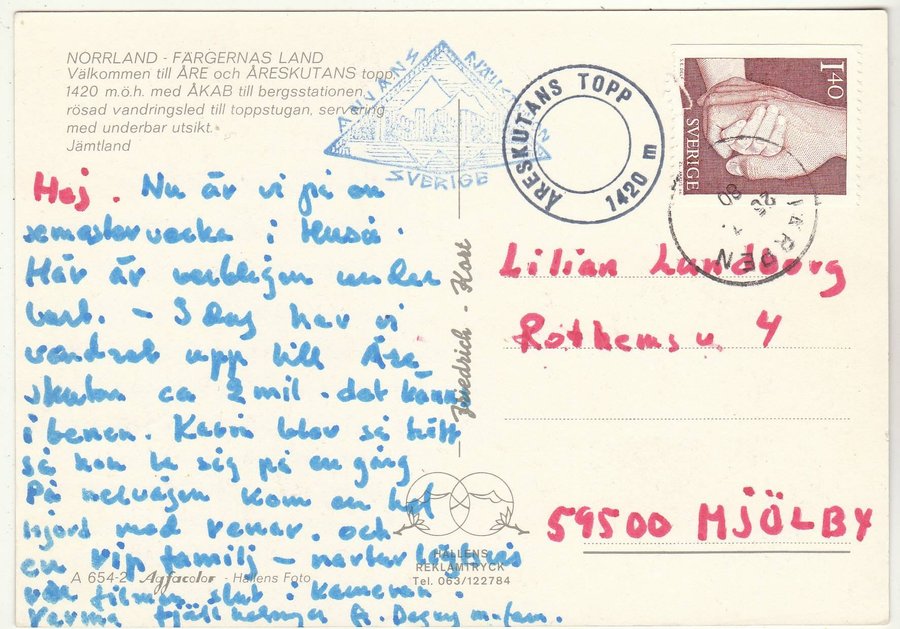 NORRLAND - FÄRGERNAS LAND
Välkommen till ÅRE och ÅRESKUTANS topp
1420 m.ö.h. med ÅKAB till bergsstationen,
rösad vandringsled till toppstugan, servering
med underbar utsikt.
Jämtland
Hej. Nu är vi på en
semestervecka i Huså.
Här är verkligen under
bart. - I Dag har vi
vandrat upp till Åre
skutan ca 2 mil - det känns
i benen. Karin blev så trött
så hon la sig på en gång
På helvägen kom en hel
hjord med renar och
en rip familj - nartur
var filmen slut i kameran!
Varma fjällhälsningar fr. Dagny m. fam.
A 654-2 Agfacolor - Hallens Foto
SVERIGE
ÅRESKUTANS TOPP
1420 m
1.40
SVERIGE
JÄRPEN
25 7 80
Friedrich - Kort
Lilian Lundborg
Röthemsv. 4
59500 MJÖLBY
HALLENS
REKLAMTRYCK
Tel. 063/122784